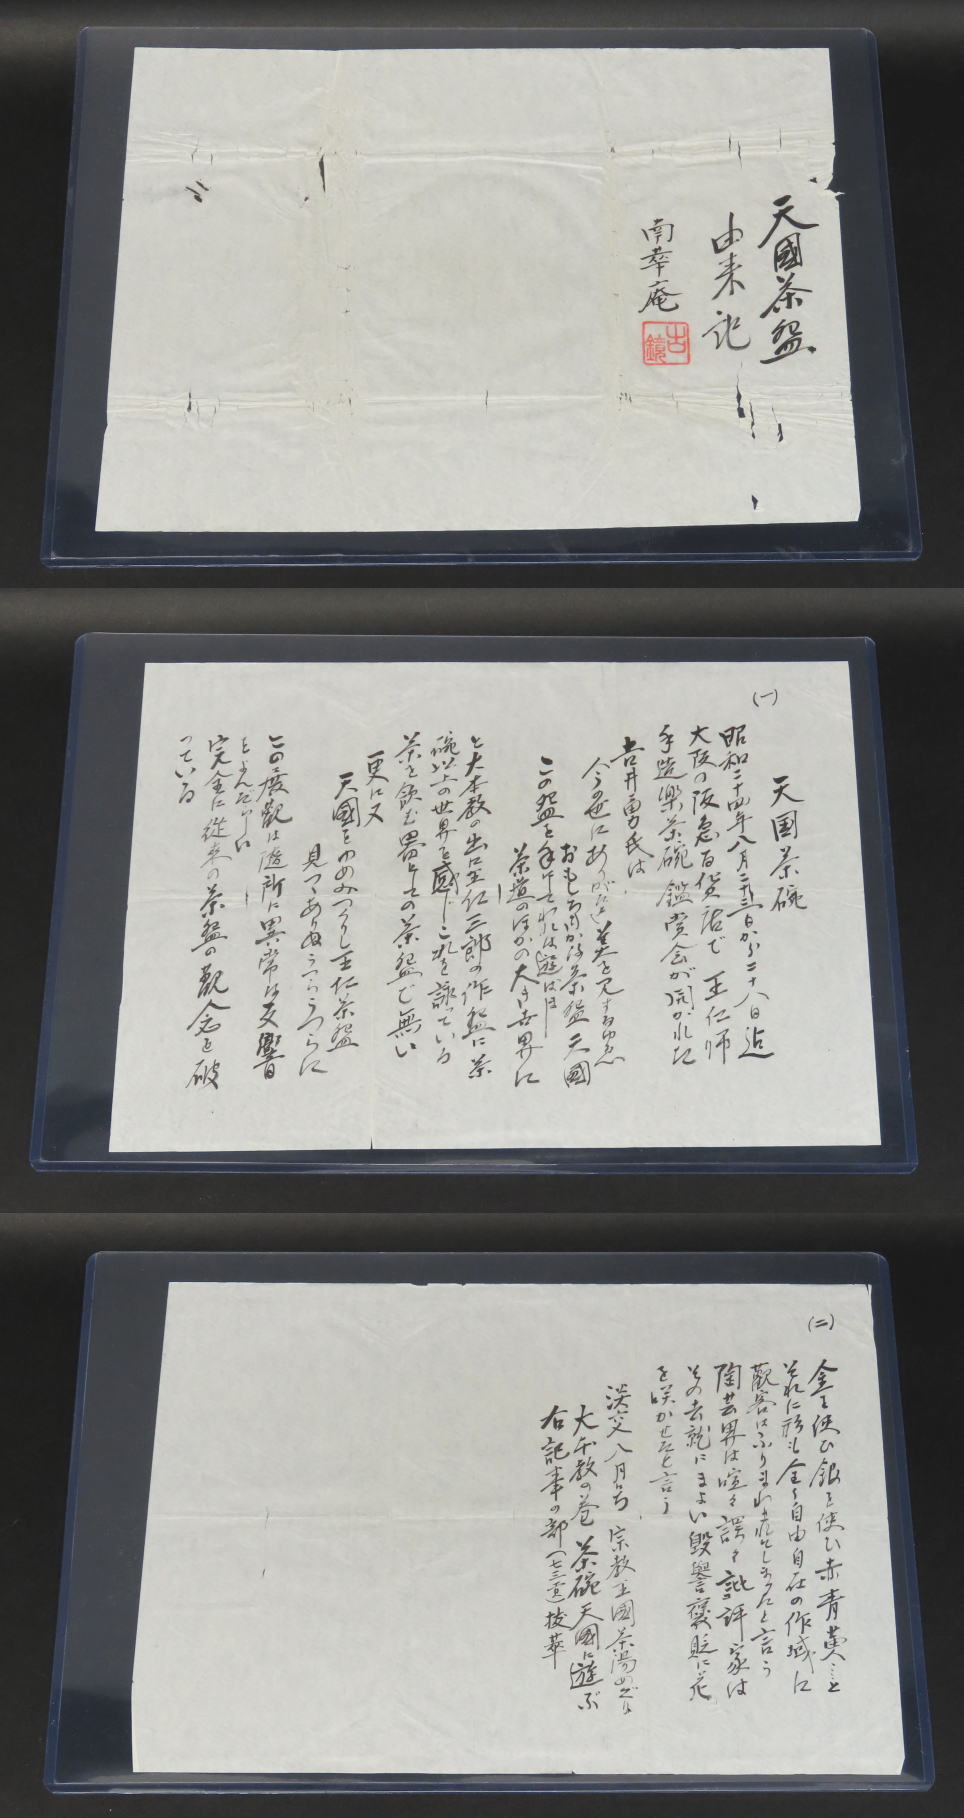 天國茶盌
由来記
南華庵
古鏡
(一)
天国茶碗
昭和二十四年八月二十三日から二十八日迄
大阪の阪急百貨店で王仁師
手造樂茶碗鑑賞会が開かれた
吉井勇氏は
今の世にありがたき美を見するゆゑ
おもしろきかな茶盌天國
この盌を手にしてわれは遊ばまし
茶道のほかの大き世界に
と大本教の出口王仁三郎の作盌に茶
碗以上の世界を感じこれを詠っている
茶を飲む器としての茶盌で無い
更に又
天國をゆめみつくりし王仁茶盌
見つつありぬうつらうつらに
とよんだ
この展観は随所に異常な反響
完全に従来の茶盌の観念を破
っている
(二)
金を使ひ銀を使ひ赤青黄と
それに形も全く自由自在の作域に
観客はふりまわされてしまったと言う
陶芸界は喧々諤々批評家は
その去就にまよい毀誉褒貶に花
を咲かせたと言う
淡交八月号 宗教王國茶湯めぐり
大本教の巻 茶碗天國に遊ぶ
右記事の部(七三頁)抜萃